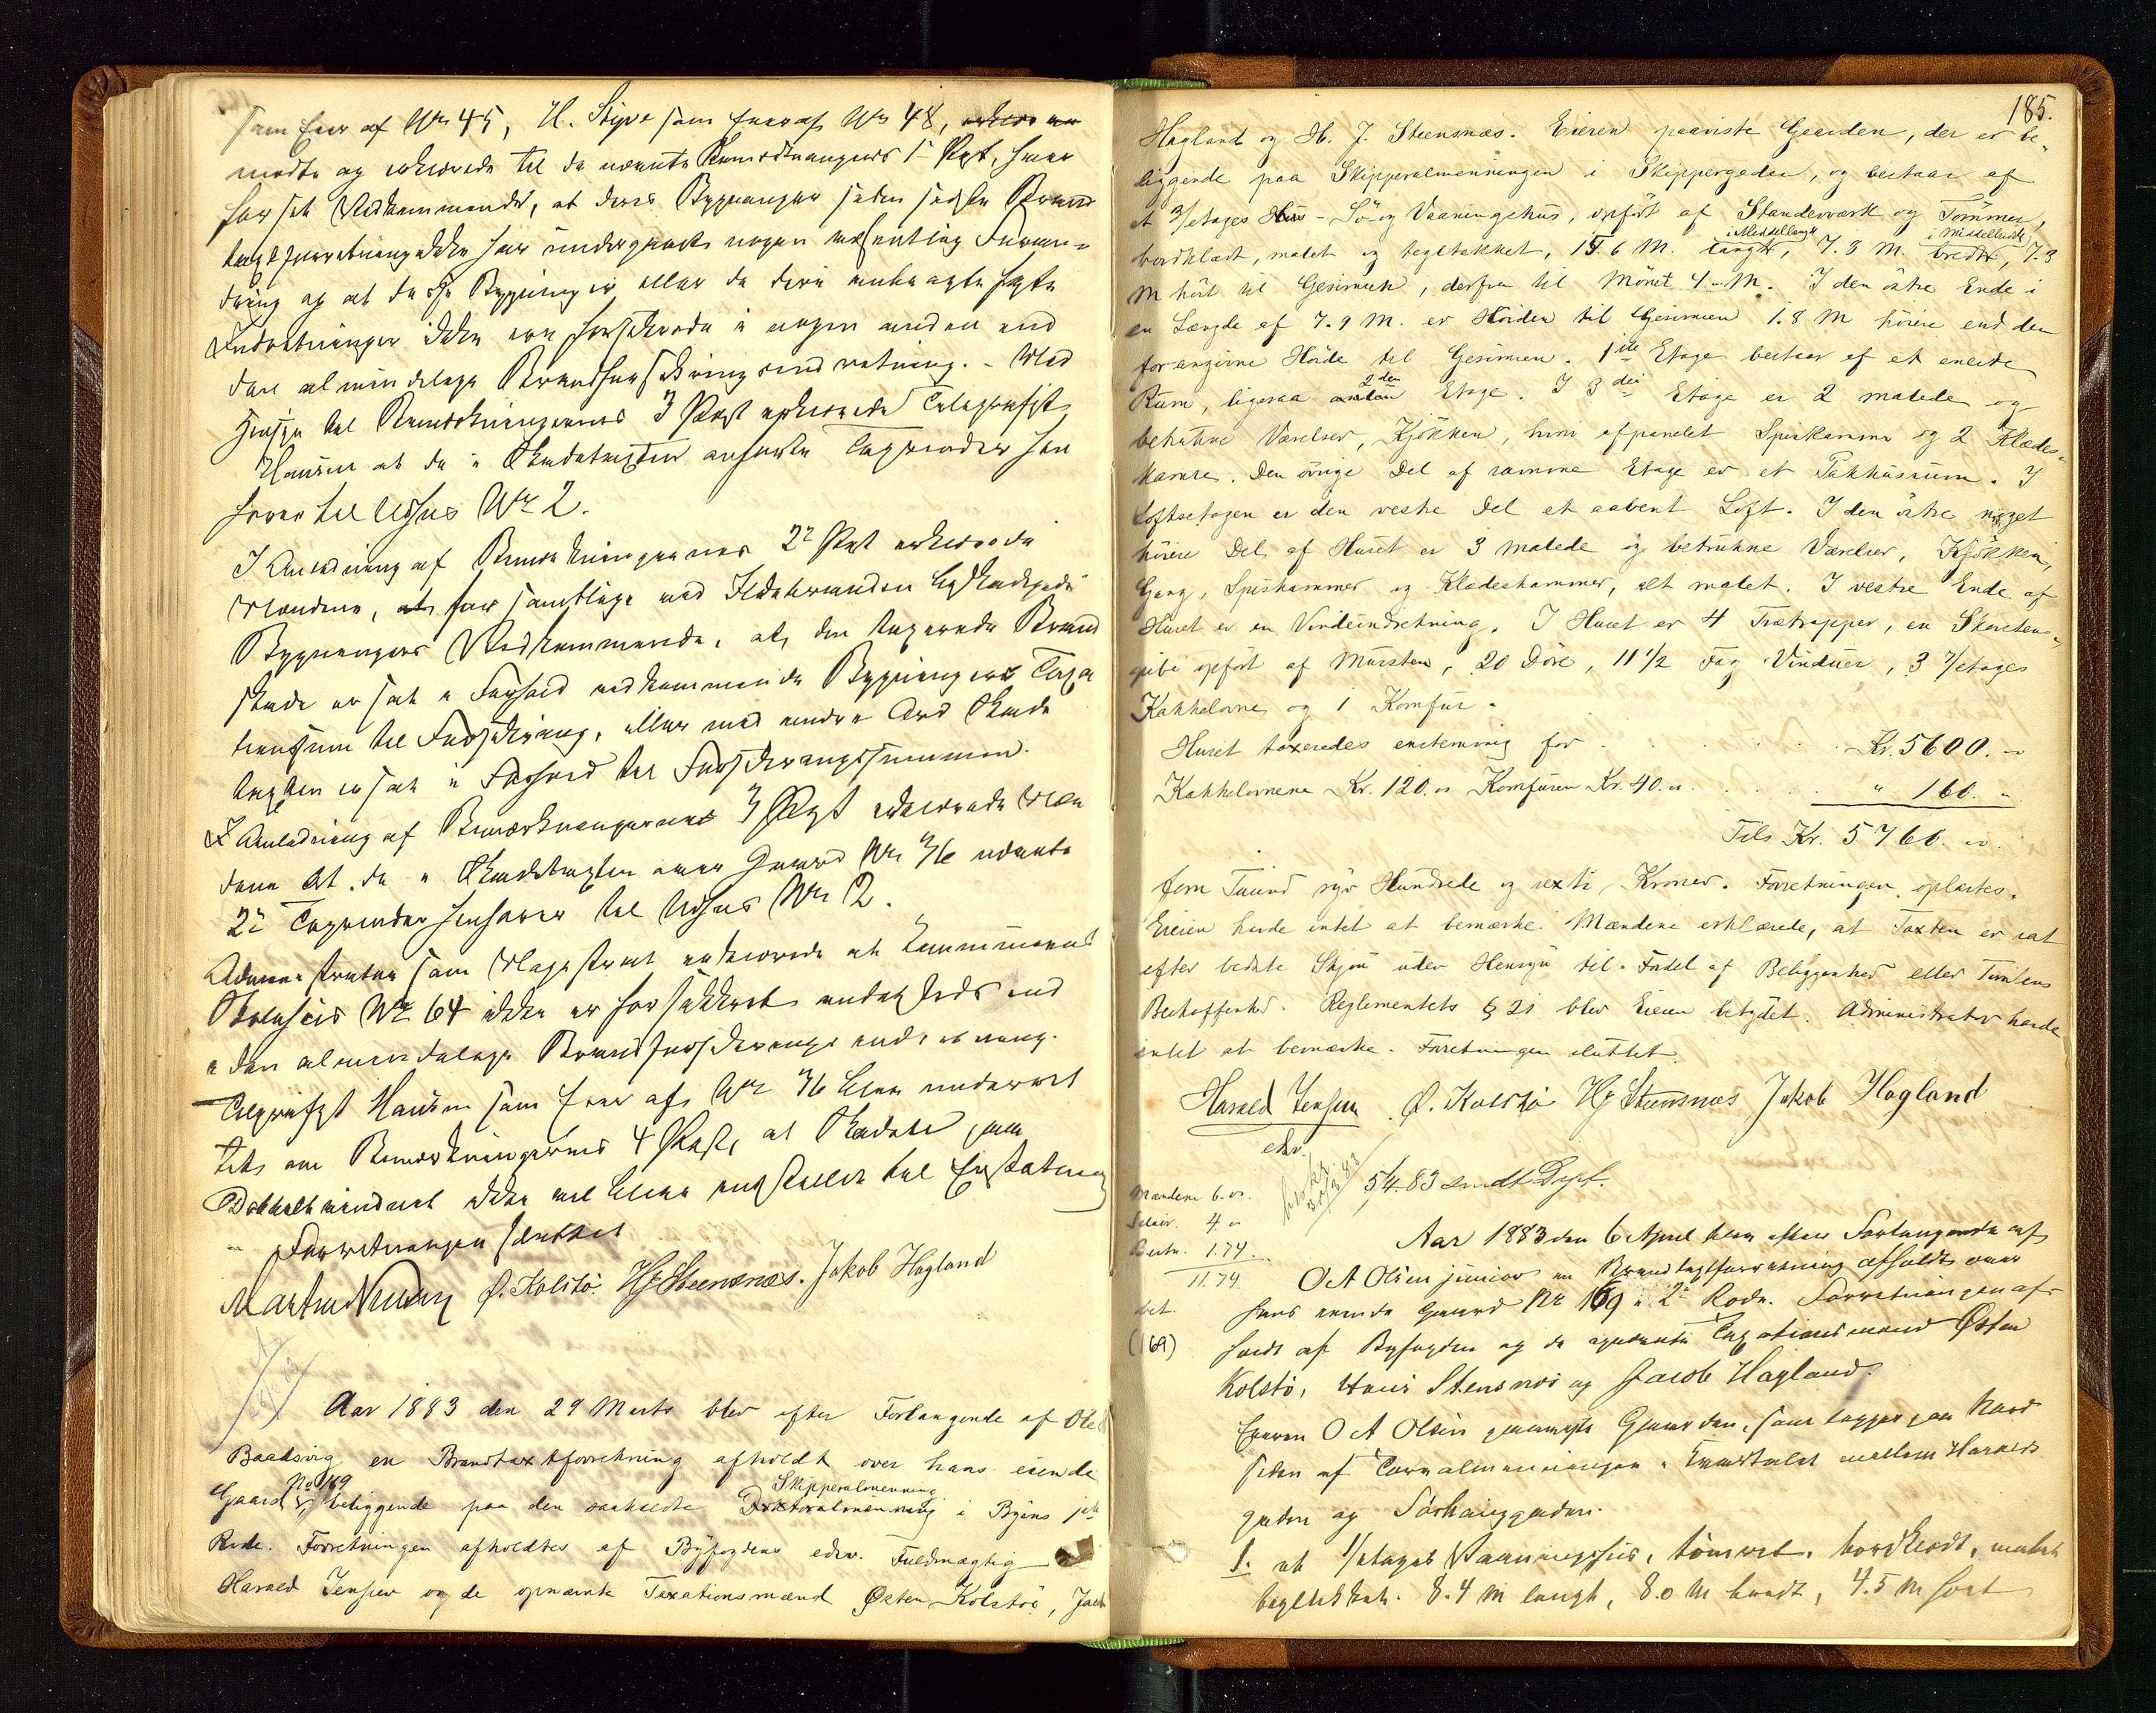 som Eier af No 45, H. Styve som Eier af No 48,
mødte og erklærede til de nævnte Bemærkningers 1ste Post, hver
for sit Vedkommende, at deres Bygninger siden sidste Brand
taxtforretning ikke har undergaaet nogen væsentlig Foran-
dring og at disse Bygninger eller de deri anbragte faste
Indretninger ikke ere forsikrede i nogen anden end
den almindelige Brandforsikringsindretning. - Med
Hensyn til Bemærkningernes 3 Post erklærede Telegrafist
Hansen at de i Skadetaxten anførte Tagrender hen
hører til Udhus No 2.
I Anledning af Bemærkningernes 2den Post erklærede
Mændene, at for samtlige ved Ildebranden beskadigede
Bygningers Vedkommende, at den taxerede Brand
skade er sat i Forhold vedkommende Bygningers Taxa
tionssum til Forsikring, eller med andre Ord Skade
taxten er sat i Forhold til Forsikringssummen.
I Anledning af Bemærkningernes 3 Post erklærede Mæn
dene At de i Skadetaxten over Gaard No 76 nævnte
2de Tagrender henhører til Udhus No 2.
Administrator som Magistrat erklærede at Kommunens
Skolehus No 64 ikke er forsikkret andetsteds end
i den almindelige Brandforsikringsindretning.
Telegrafist Hansen som Eier af No 76 blev underret
tet om Bemærkningernes 4 Post, at Skaden paa
ikke vil blive anstillet til Erstatning
Forretningen sluttet
Ø. Kolstø. HJ Steensnæs. Jakob Hagland
Aar 1883 den 29 Marts blev efter Forlangende af Ole
Baadsvig en Brandtaxtforretning afholdt over hans eiende
No 169 Skipperalmenning
Gaard beliggende paa den saakaldte Doktoralmenning i Byens 1ste
Rode. Forretningen afholdtes af Byfogdens edsv. Fuldmægtig
Harald Jensen og de opnævnte Taxationsmænd Østen Kolstø, Jacob
185.
Hagland og H. J. Steensnæs. Eieren paaviste Gaarden, der er be-
liggende paa Skipperalmenningen i Skippergaden, og bestaar af
et 3/etages Hus - Sø og Vaaningshus, opført af Standerværk og Tømmer,
i Middellængde i Middelbredde
bordklædt, malet og tegltækket, 15.6 M. langt, 7.8 M. bredt, 7.3
M høit til Gesimsen, derfra til Mønet 4 - M. I den østre Ende i
en Længde af 7.9 M. er Høiden til Gesimsen 1.8 M høiere end den
foran givne Høide til Gesimsen. 1ste Etage bestaar af et eneste
Rum, ligesaa 2den Etage. I 3die Etage er 2 malede og
betrukne Værelser, Kjøkken, hvori afpanelet Spiskammer og 2 Klædes-
kamre. Den øvrige Del af samme Etage er et Pakhusrum. I
Loftsetagen er den vestre Del et aabent Loft. I den østre noget
høiere Del af Huset er 3 malede og betrukne Værelser, Kjøkken,
Gang, Spiskammer og Klædeskammer, alt malet. I vestre Ende af
Huset er en Vindeindretning. I Huset er 4 Trætrapper, en Skorstens-
pibe opført af Mursten, 20 Døre, 11 1/2 Fag Vinduer, 3 2/etages
Kakkelovne og 1 Komfur.
Huset taxeredes enstemmig for . . . . Kr. 5600. "
Kakkelovnene Kr. 120. " Komfuren Kr. 40. " . . . . " 160. "
Tils Kr. 5760. "
fem Tusind syv Hundrede og sexti Kroner. Forretningen oplæstes.
Eieren havde intet at bemærke. Mændene erklærede, at Taxten er sat
efter bedste Skjøn uden Hensyn til Fordel af Beliggenhed eller Tomtens
Beskaffenhed. Reglementets § 21 blev Eieren betydet. Administrator havde
intet at bemærke. Forretningen sluttet.
Harald Jensen Ø. Kolstø HJ Steensnæs Jakob Hagland
edsv.
5/4.83 sendt Dept.
Mændene 6. "
4 "
1.74.
11.74.
Aar 1883 den 6 April blev efter Forlangende af
O A Olsen junior en Brandtaxtforretning afholdt over
hans eiende Gaard No 169 i 2de Rode. Forretningen af-
(169)
holdt af Byfogden og de opnævnte Taxationsmænd Østen
Kolstø, Hans Stensnæs og Jacob Hagland.
Eieren O A Olsen paaviste Gaarden, som ligger paa Nord
siden af Torvalmenningen i Kvartalet mellem Haralds
gaden og Sørhauggaden.
1. et 1/etages Vaaningshus, tømret, bordklædt, malet
tegltækket. 8.4 M langt, 8.0 M bredt, 4.5 M høit